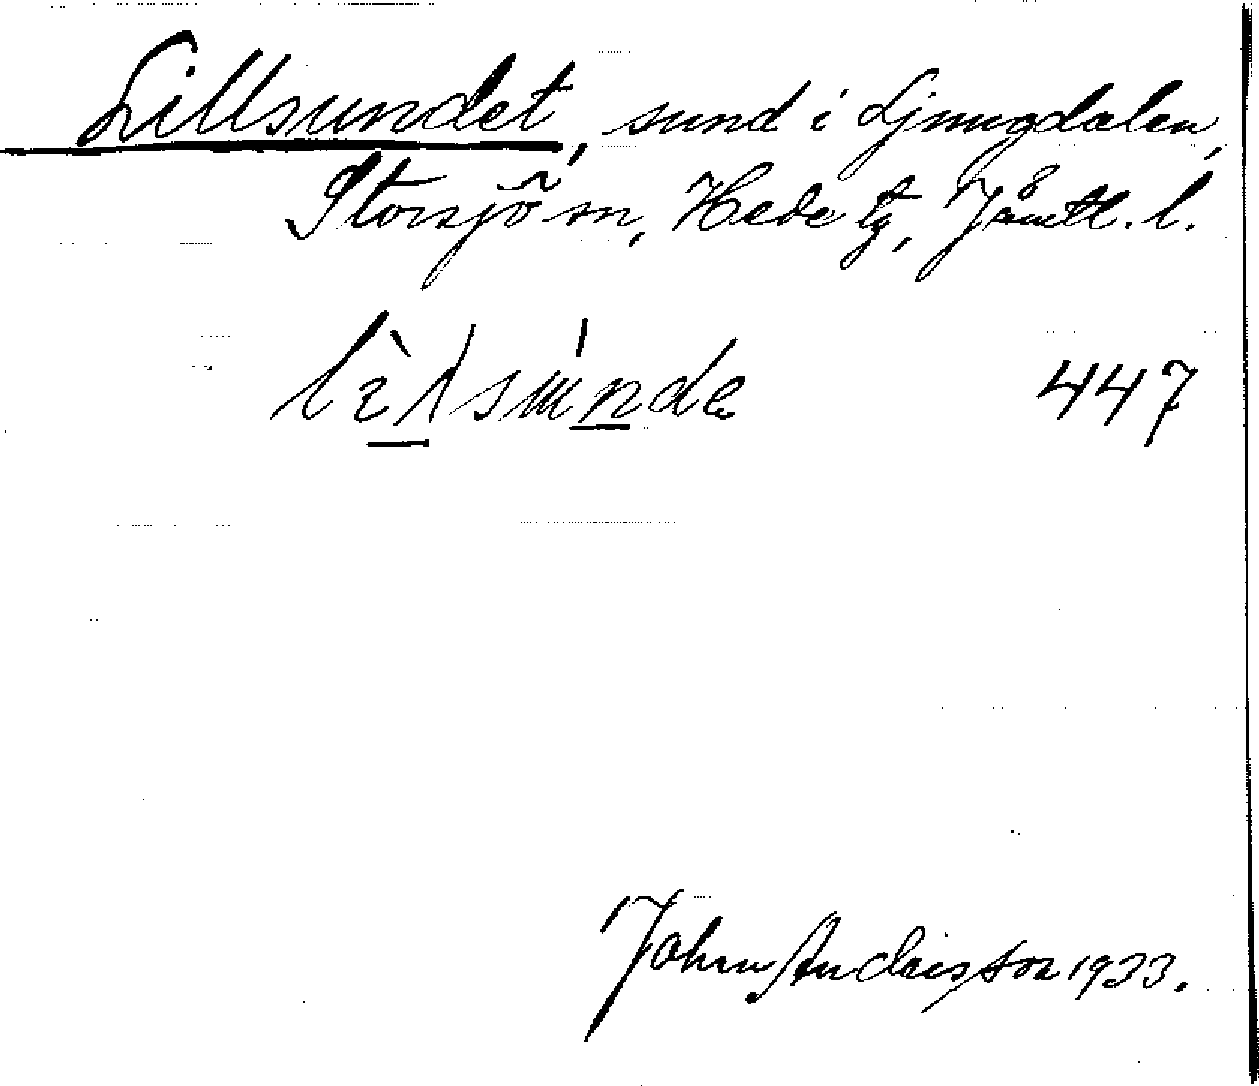 Lillsundet, sund i Ljungdalen,
Storsjö sn, Hede tg, Jämtl. l.
447
John Andersson 1933.